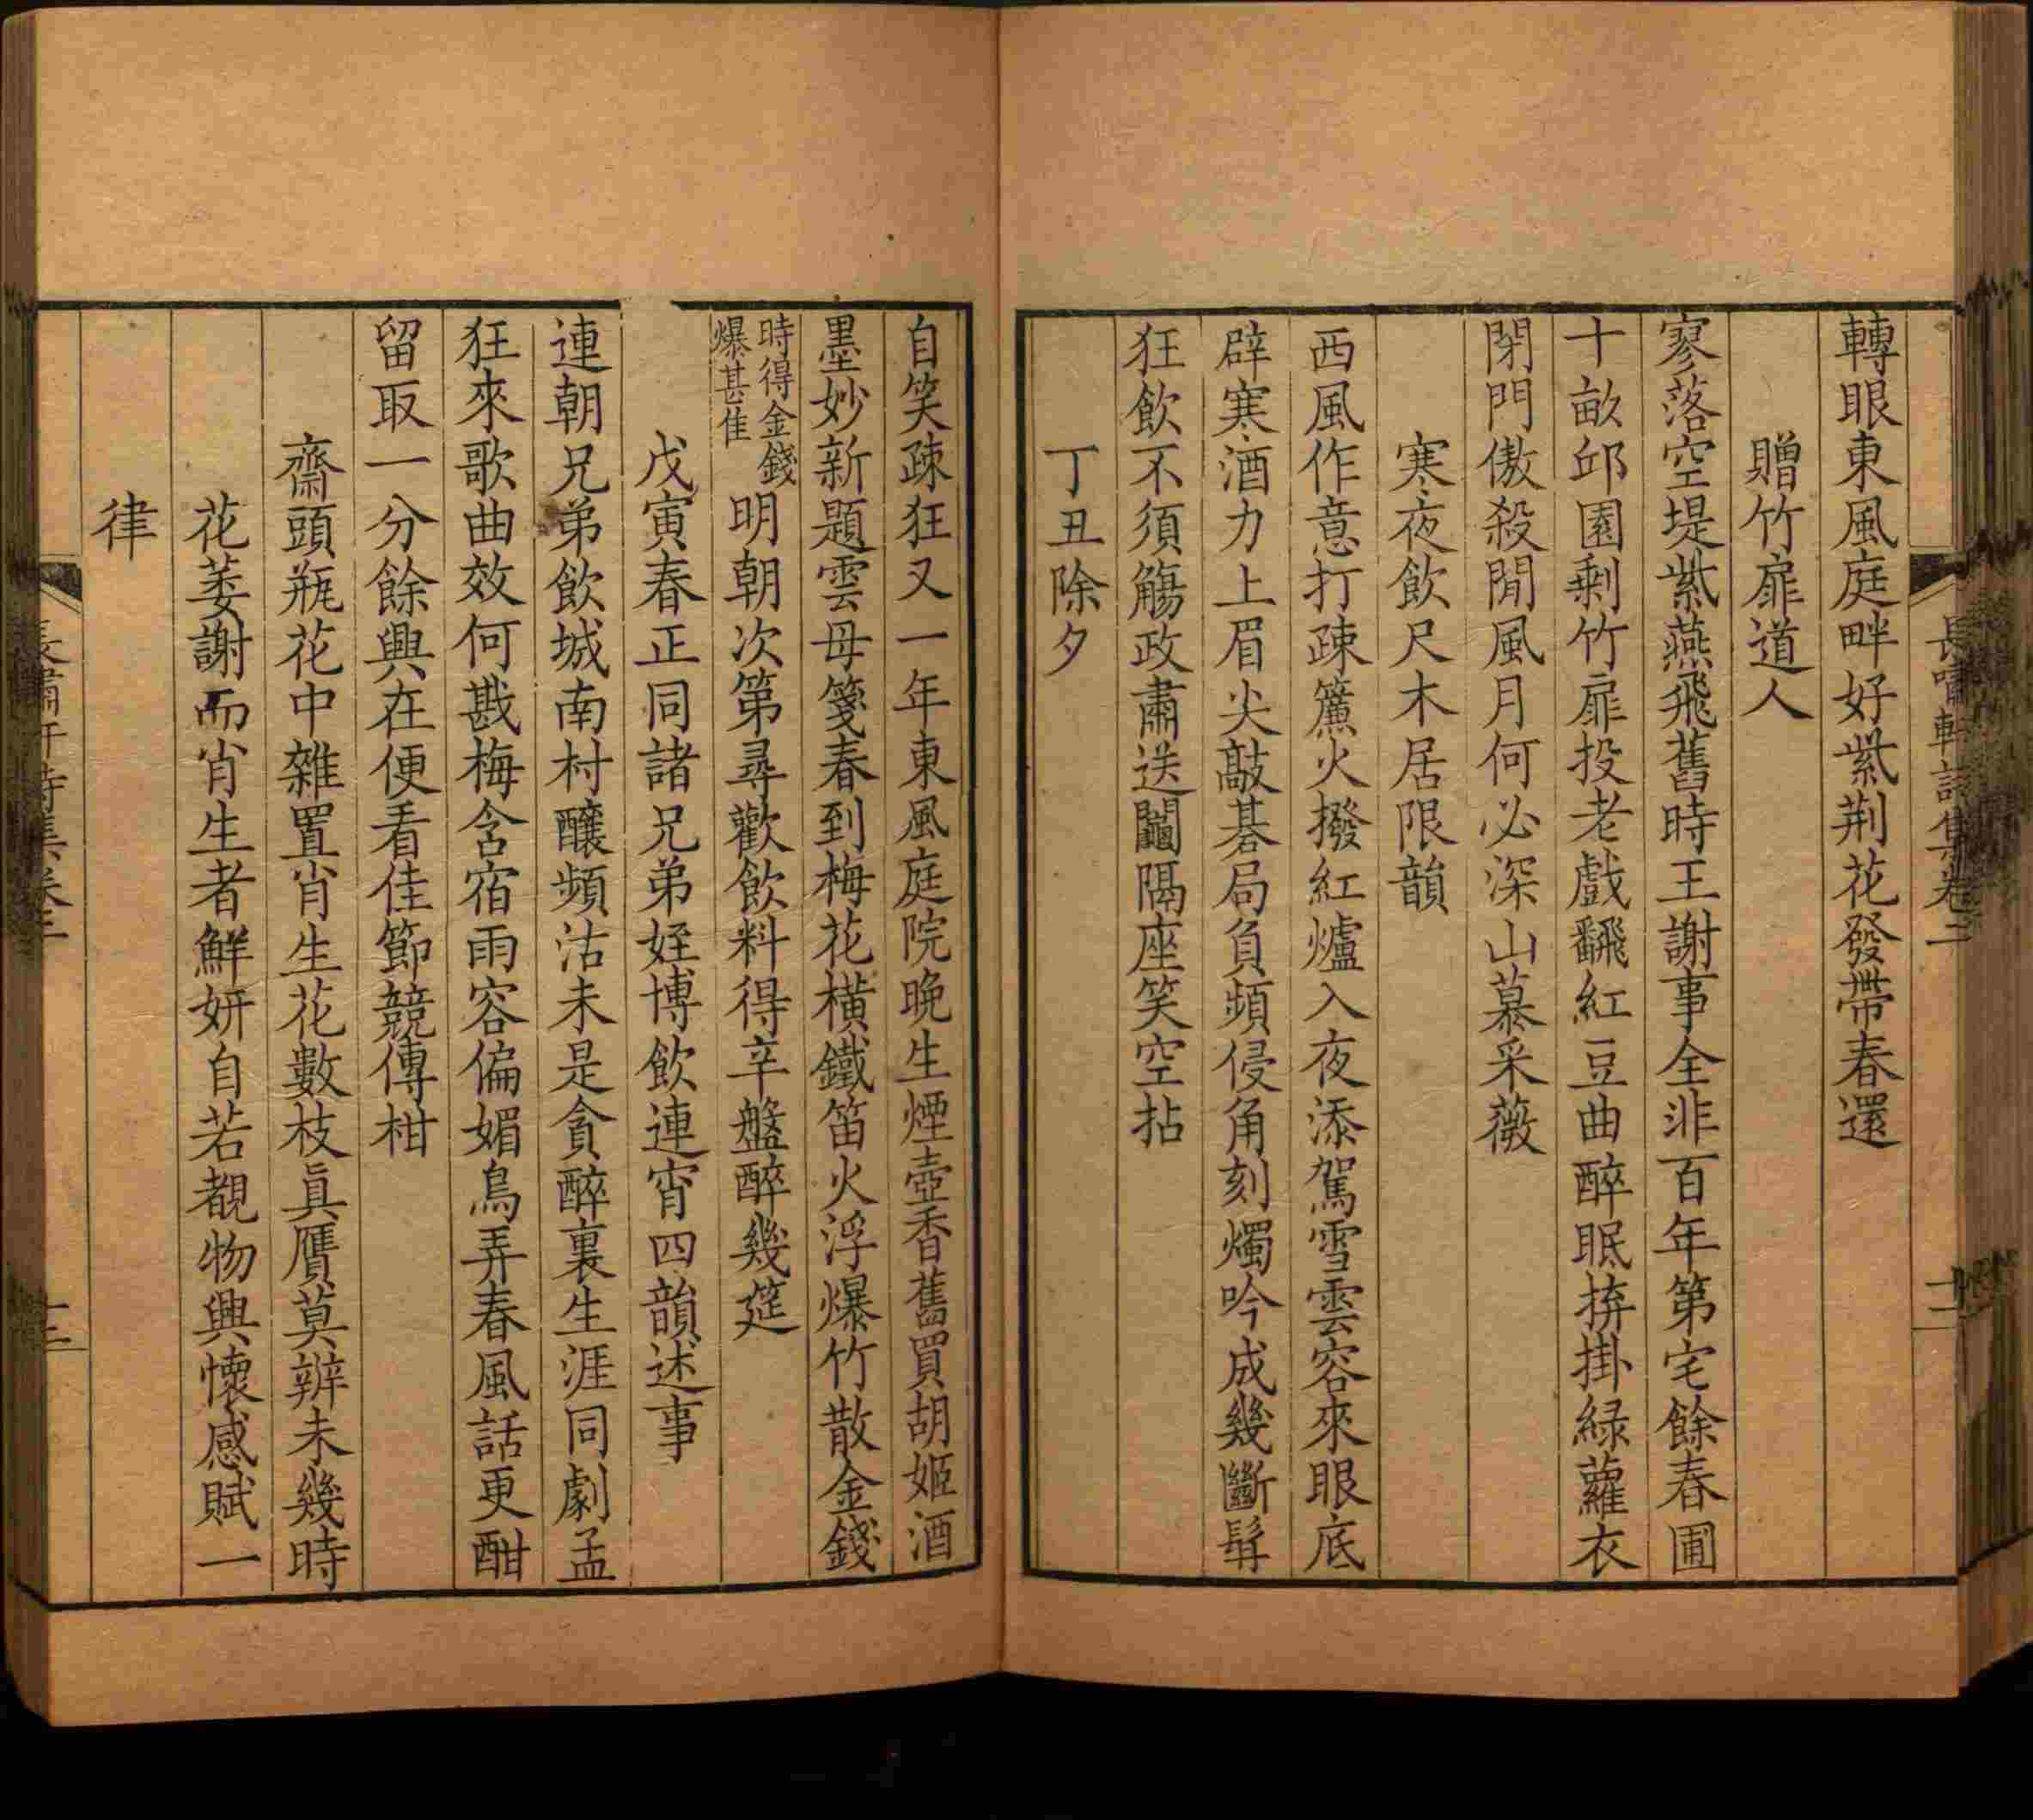 長嘯軒詩集卷二
十二
轉眼東風庭畔好紫荆花發帶春還
贈竹扉道人
寥落空堤紫燕飛舊時王謝事全非百年第宅餘春圃
十畝邱園剩竹扉投老戲飜紅豆曲醉眠拚掛綠蘿衣
閉門傲殺閒風月何必深山慕采薇
寒夜飲尺木居限韻
西風作意打疎簾火撥紅爐入夜添駕雪雲容來眼底
辟寒酒力上眉尖敲碁局負頻侵角刻燭吟成幾斷髯
狂飲不須觴政肅送鬮隔座笑空拈
丁丑除夕
自笑疎狂又一年東風庭院晚生煙壺香舊買胡姬酒
墨妙新題雲母箋春到梅花橫鐵笛火浮爆竹散金錢
時得金錢
爆甚佳
明朝次第尋歡飲料得辛盤醉幾筵
戊寅春正同諸兄弟姪博飲連宵四韻述事
連朝兄弟飲城南村釀頻沽未是貪醉裏生涯同劇孟
狂來歌曲效何戡梅含宿雨容偏媚鳥弄春風話更酣
留取一分餘興在便看佳節競傳柑
齋頭瓶花中雜置肖生花數枝眞贋莫辨未幾時
花萎謝而肖生者鮮妍自若覩物興懷感賦一
律
長嘯軒詩集卷二
十三